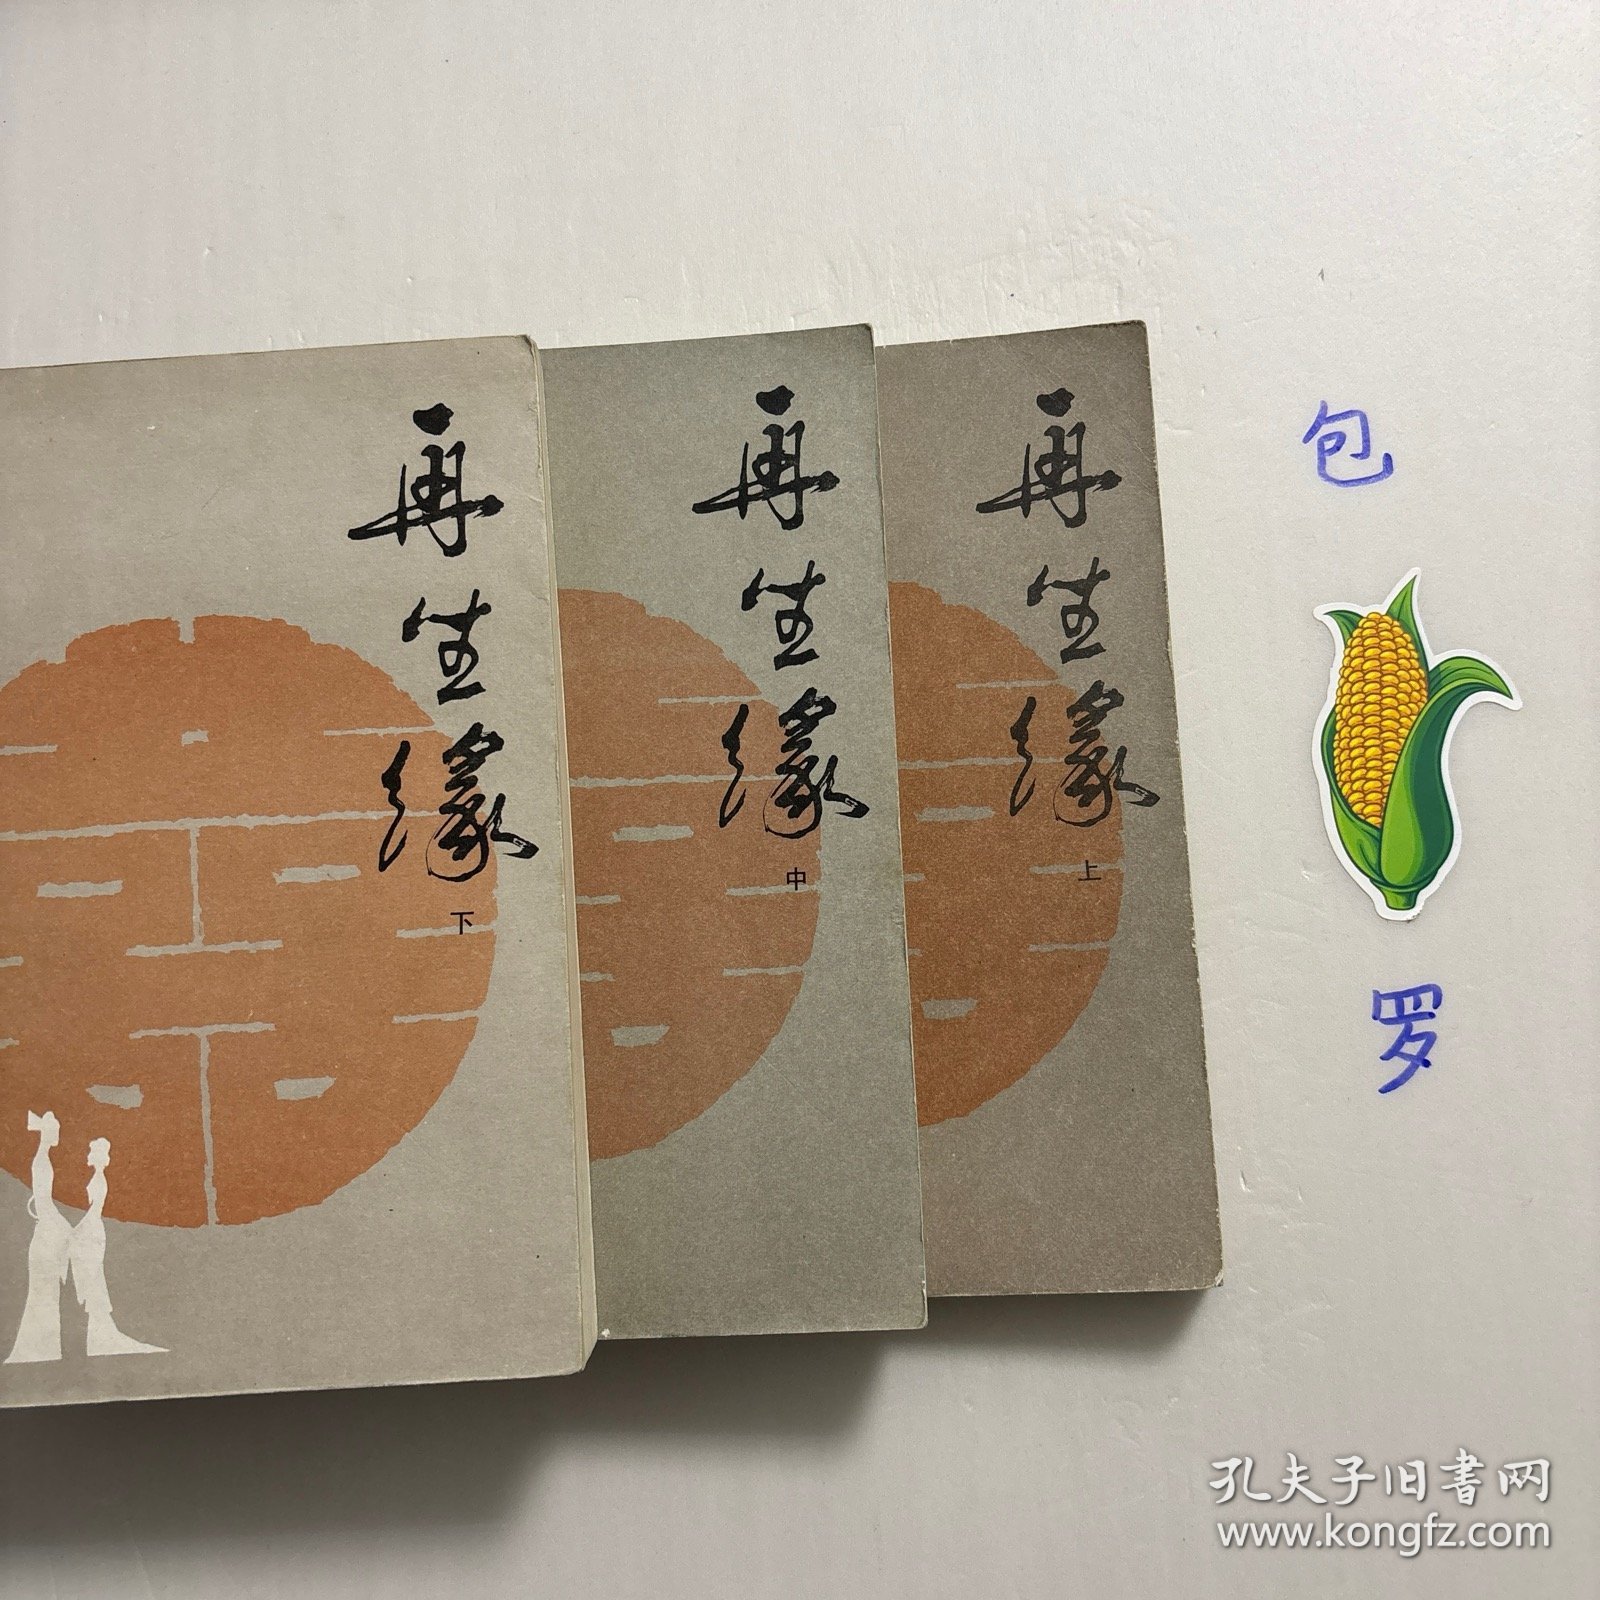 再生缘
下
再生缘
中
再生缘
上
包
罗
孔夫子旧书网
www.kongfz.com